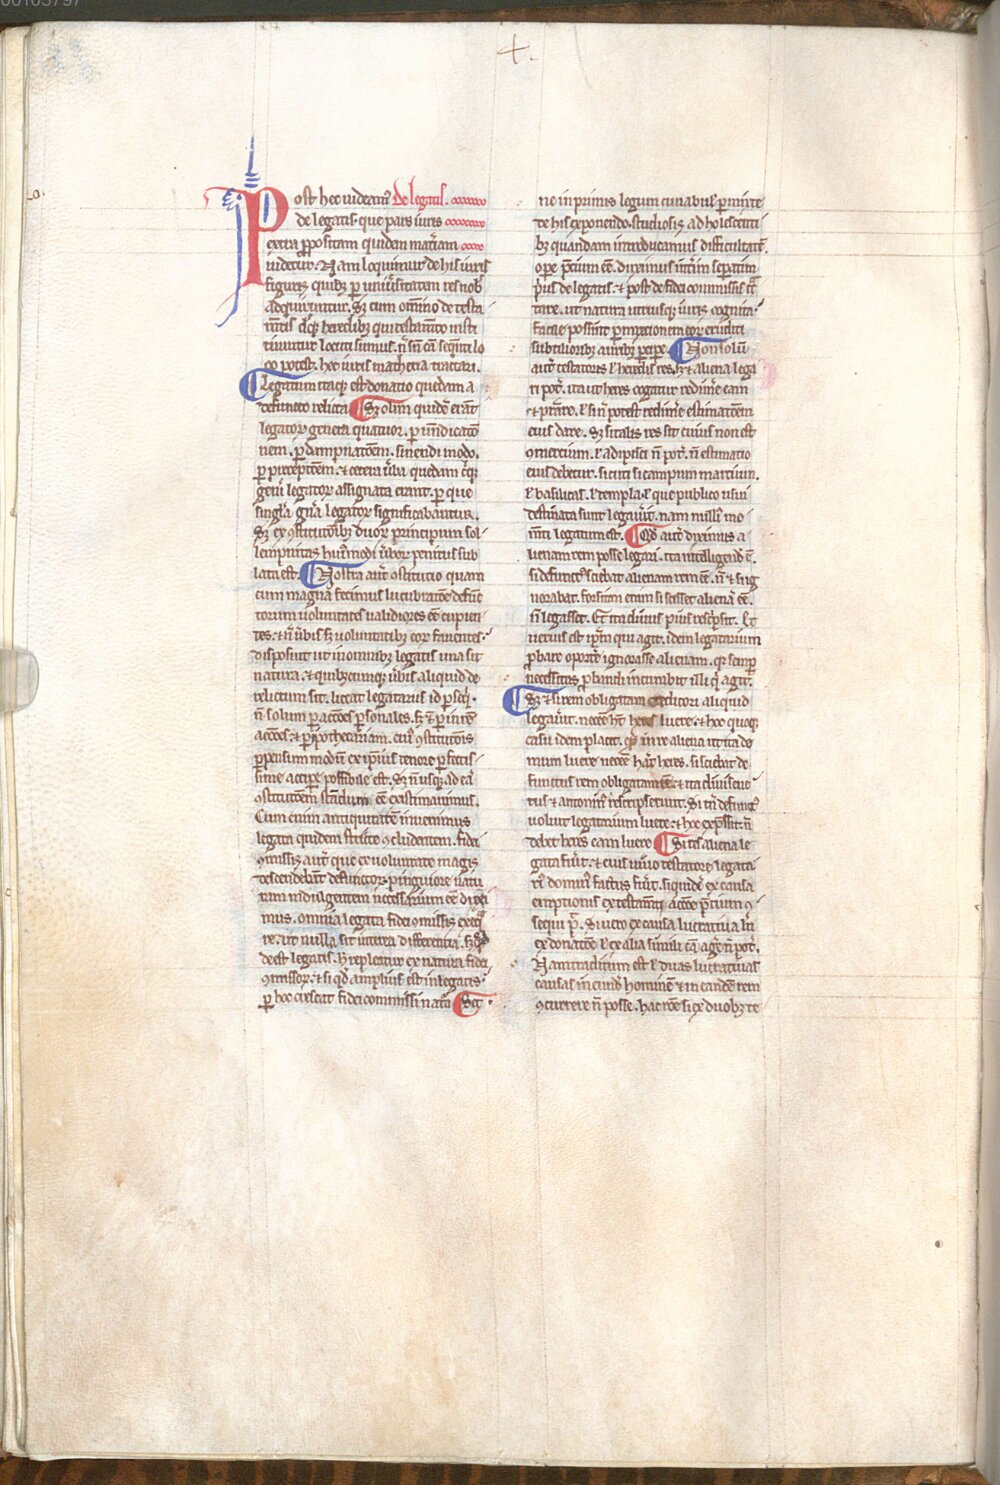 +.
Post hec videam᷒ De legatis.
de legatis. que pars iuris
extra ꝓpositam quidem mat̃iam
videtur. Nam loquimur de his iuris
figuris quibꝫ ꝑ uniũsitatem res nob̃
adquiruntur. Sꝫ cum om̃ino de testa
m̃tis d̃qꝫ heredibꝫ qui testam̃to insti
tuuntur locuti sumus. ñ sñ cã seq̃nti lo
co potest. hec iuris matheria tractari.
Legatum itaqꝫ est donatio quedam a
defuncto relicta Sꝫ olim quidẽ erãt
legatoꝝ genera quatuor. ꝑ uindicatõ
nem. ꝑ dampnatõem. sinendi modo.
ꝑ p̃ceptõem. ⁊ certa ũba quedam cuiqꝫ
gen̾i legatoꝝ assignata erant. ꝑ que
singl̃a gña legatoꝝ significabantur.
Sꝫ ex ꝯstitutõibꝫ diuoꝝ principum sol
lempnitas hui᷒modi ũboꝝ penitus sub
lata est. Nostra aũt ꝯstitutio quam
cum magna fecimus lucubratõe defũc
torum uoluntates ualidiores eẽ cupien
tes. ⁊ ñ ũbis sꝫ uoluntatibꝫ eoꝝ fauentes.
disposuit ut in omnibꝫ legatis una sit
natura. ⁊ quibꝫcumqꝫ ũbis aliquid de
relictum sit. liceat legatariis id ꝑseq̃.
ñ solum ꝑ actões ꝑsonales. sꝫ ⁊ ꝑ in rẽ
actões. ⁊ ꝑ ipothecariam. cui᷒ ꝯstitutõis
ꝑpensum modũ ex ip̃ius tenore ꝑfectis
sime accipe possibile est. Sꝫ ñ usqꝫ ad eã
ꝯstitutõem standum eẽ existimauimus.
Cum enim antiquitatẽ inuenimus
legata quidem stricte ꝯcludentem. fidei
ꝯmissis aũt que ex uoluntate magis
descendebãt defunctoꝝ pinguiorẽ natu
ram indulgentem necessarium eẽ duxi
mus. omnia legata fidei ꝯmissis exeq̃
re. ut nulla sit inter ea differentia. sꝫ qđ
deest legatis. hͦ repleatur ex natura fidei
ꝯmissoꝝ. ⁊ si qđ amplius est in legatis.
ꝑ hoc crescat fidei commissi natã Sꝫ
ne in primis legum cunabul᷒ ꝑmixte
de his exponendo. studiosis adholescenti
bꝫ quandam introducamus difficultatẽ.
ope p̃cium eẽ. diximus int̾im sepatim
p̾us de legatis. ⁊ post de fidei commissis t̃c
tare. ut natura utriusqꝫ iuris cognita.
facile possint ꝑmixtionem eoꝝ eruditi
subtilioribꝫ auribꝫ p̾cipe. Non solũ
aut̃ testatoris l̃ heredis res. sꝫ ⁊ aliena lega
ri pot̃. ita ut heres cogatur redim̾e eam
⁊ p̃stare. l̃ si ñ potest redim̾e estimatõem
eius dare. Sꝫ si talis res sit cuius non est
ꝯmercium. l̃ adipisci ñ pot̃. ñ estimatio
eius debetur. sicuti si campum martium.
l̃ basilicas. l̃ templa. l̃ que publico usui
destinata sunt legau̾it. nam nulli᷒ mo
m̃ti legatum est. Qđ aut̃ diximus a
lienam rem posse legari. ita intelligendũ ẽ.
si defunct᷒ sciebat alienam rem eẽ. ñ ⁊ si ig
norabat. forsitan enim si scisset alienã eẽ.
ñ legasset. Et ita diuus pius resc̾psit. Et
uerius est ip̃m qui agit. idem legatarium
ꝓbare oporte᷒ ignorasse alienam. qꝛ semp
necessitas ꝓbandi incumbit illi q̃ agit.
Sꝫ ⁊ si rem obligatam creditori aliquid
legau̾it. necẽ hẽt heres luere. ⁊ hoc quoqꝫ
casu idem placet. qđ in re aliena ut ita de
mum luere necẽ hẽat heres. si sciebat de
functus rem obligatam eẽ. ⁊ ita diui seue
rus ⁊ antonin᷒ rescripserunt. Si tñ defunct᷒
uoluit legatarium luere. ⁊ hoc exp̃ssit. ñ
debet heres eam luere Si res aliena le
gata fu̾it. ⁊ eius uiuo testatore legata
ri᷒ domin᷒ factus fu̾it. siquidẽ ex causa
emptionis ex testam̃ti actõe p̃tium ꝯ
sequi p̃t. Si uero ex causa lucratiua ũl
ex donatõe l̃ ex alia simili cã. ag̾e ñ pot̃.
Nam traditum est l̃ duas lucratiuas
causas in eund̃ hominẽ ⁊ in eandẽ rem
ꝯcurrere ñ posse. hac rõe si ex duobꝫ te